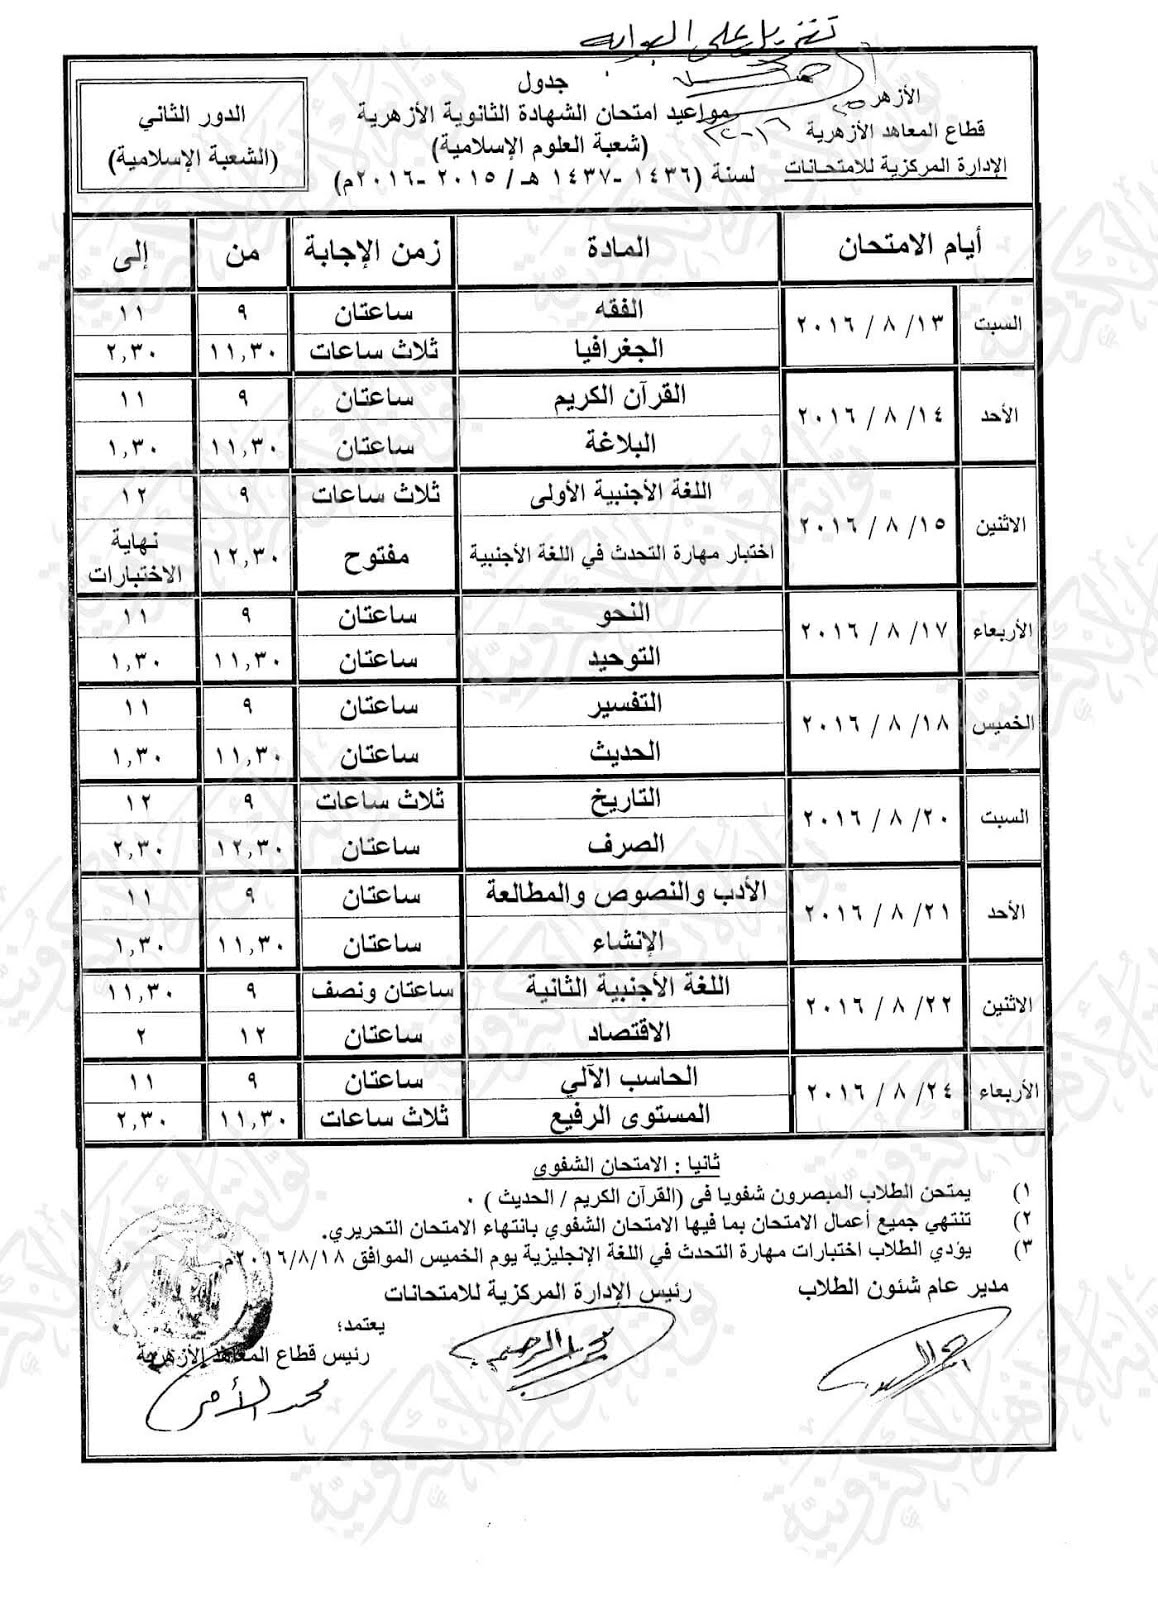 تنزيل على البوابه
الأزهر
قطاع المعاهد الأزهرية
الإدارة المركزية للامتحانات
جدول
مواعيد امتحان الشهادة الثانوية الأزهرية
(شعبة العلوم الإسلامية)
لسنة (١٤٣٦ -١٤٣٧ هـ/ ٢٠١٥ -٢٠١٦م)
الدور الثاني
(الشعبة الإسلامية)
أيام الامتحان المادة زمن الإجابة من إلى
السبت ١٣/ ٨ / ٢٠١٦ الفقه ساعتان ٩ ١١
الجغرافيا ثلاث ساعات ١١,٣٠ ٢,٣٠
الأحد ١٤/ ٨ / ٢٠١٦ القرآن الكريم ساعتان ٩ ١١
البلاغة ساعتان ١١,٣٠ ١,٣٠
الاثنين ١٥/ ٨ / ٢٠١٦ اللغة الأجنبية الأولى ثلاث ساعات ٩ ١٢
اختبار مهارة التحدث في اللغة الأجنبية مفتوح ١٢,٣٠ نهاية الاختبارات
الأربعاء ١٧/ ٨ / ٢٠١٦ النحو ساعتان ٩ ١١
التوحيد ساعتان ١١,٣٠ ١,٣٠
الخميس ١٨/ ٨ / ٢٠١٦ التفسير ساعتان ٩ ١١
الحديث ساعتان ١١,٣٠ ١,٣٠
السبت ٢٠/ ٨ / ٢٠١٦ التاريخ ثلاث ساعات ٩ ١٢
الصرف ساعتان ١٢,٣٠ ٢,٣٠
الأحد ٢١/ ٨ / ٢٠١٦ الأدب والنصوص والمطالعة ساعتان ٩ ١١
الإنشاء ساعتان ١١,٣٠ ١,٣٠
الاثنين ٢٢/ ٨ / ٢٠١٦ اللغة الأجنبية الثانية ساعتان ونصف ٩ ١١,٣٠
الاقتصاد ساعتان ١٢ ٢
الأربعاء ٢٤/ ٨ / ٢٠١٦ الحاسب الآلي ساعتان ٩ ١١
المستوى الرفيع ثلاث ساعات ١١,٣٠ ٢,٣٠
ثانيا : الامتحان الشفوى
١) يمتحن الطلاب المبصرون شفويا فى (القرآن الكريم / الحديث ) .
٢) تنتهي جميع أعمال الامتحان بما فيها الامتحان الشفوي بانتهاء الامتحان التحريري.
٣) يؤدي الطلاب اختبارات مهارة التحدث في اللغة الإنجليزية يوم الخميس الموافق ٢٠١٦/٨/١٨م
مدير عام شئون الطلاب
رئيس الإدارة المركزية للامتحانات
يعتمد؛
رئيس قطاع المعاهد الأزهرية